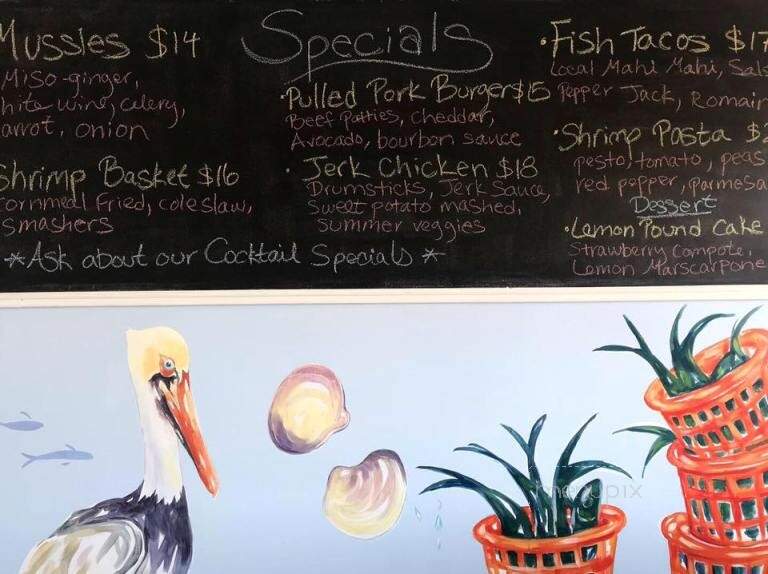 Specials
Mussles $14
Miso-ginger,
white wine, celery,
carrot, onion
Shrimp Basket $16
Cornmeal Fried, coleslaw,
smashers
*Ask about our Cocktail Specials*
·Pulled Pork Burger $15
Beef Patties, cheddar,
Avocado, bourbon sauce
·Jerk Chicken $18
Drumsticks, Jerk Sauce,
Sweet potato mashed,
summer veggies
·Fish Tacos $17
Local Mahi Mahi, Sals
pepper Jack, Romain
·Shrimp Pasta $2
pesto, tomato, peas
red pepper, parmesa
Dessert
·Lemon Pound Cake
Strawberry Compote,
Lemon Marscarpone